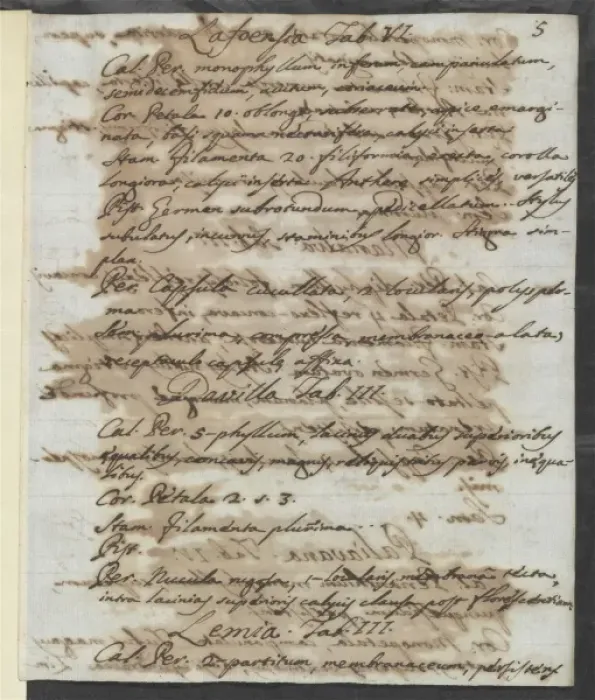 Lafoensia Tab. VI. 5
Cal. Per. monophyllum, inferum, campanulatum,
semidecemfidum, coriaceum.
Cor. Petala 10. oblonga, apice emargi-
nata, squama nectarifera, calyci inserta.
Stam. Filamenta 20. filiformia, erecta, corolla
longiora, calyci inserta. Antherae simplices versatiles
Pist. Germen subrotundum, pedicellatum. Stylus
subulatus, incurvus, staminibus longior. Stigma sim-
plex.
Per. Capsula 2-locularis, polysper-
ma.
plurima, compressa, membranaceo-alata,
receptaculo capsulae affixa.
Davilla Tab. III.
Cal. Per. 5-phyllum, laciniis duabus superioribus
aequalibus, concavis, magnis, reliquis tribus parvis, inaequa-
libus.
Cor. Petala 2. s. 3.
Stam. Filamenta plurima...
Pist.
Per. Nucula nigella, 1-locularis, membrana tecta,
intra lacinias superioris calycis clausa post florescentiam.
Lemia. Tab. III.
Cal. Per. 2-partitum, membranaceum, persistens